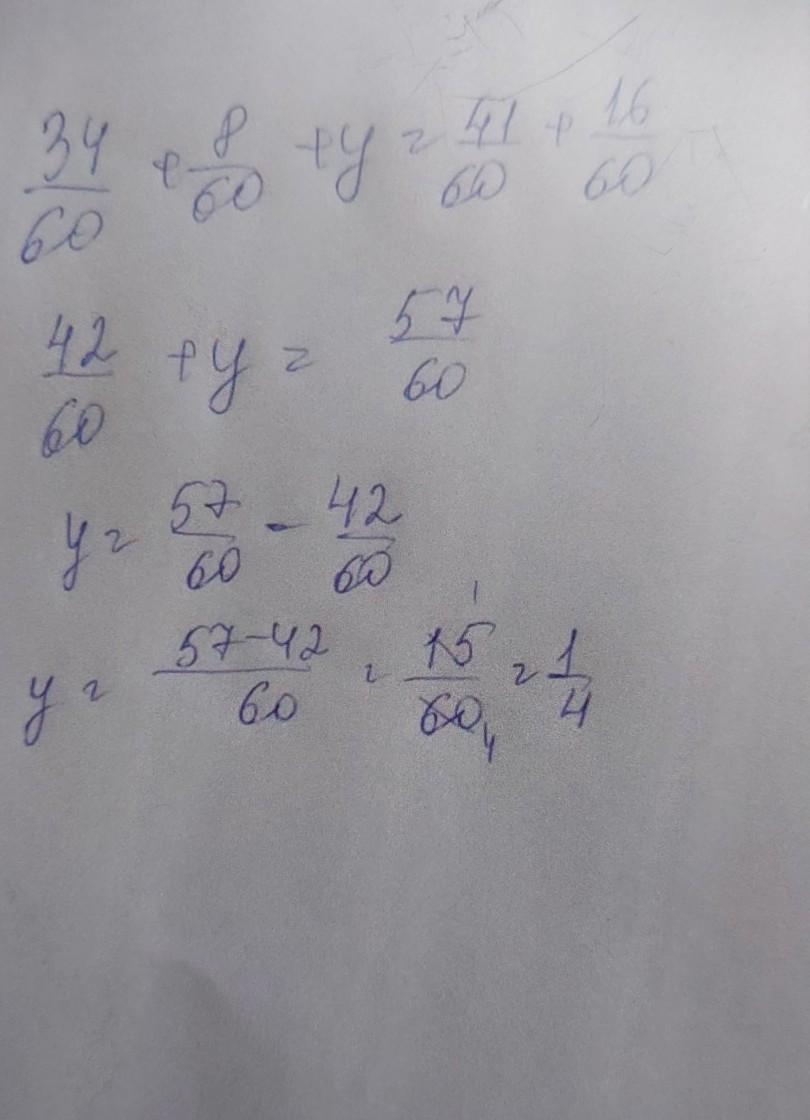 34/60 + 8/60 + y = 41/60 + 16/60
42/60 + y = 57/60
y = 57/60 - 42/60
y = 57-42/60 = 15 1/60 4 = 1/4